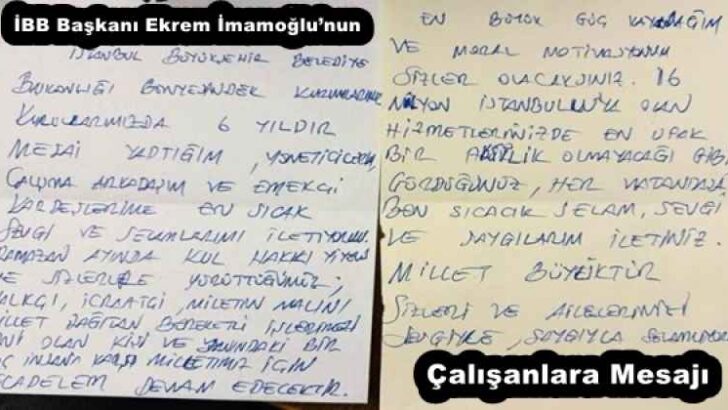 İBB Başkanı Ekrem İmamoğlu’nun
İSTANBUL BÜYÜKŞEHİR BELEDİYE
BAŞKANLIĞI BÜNYESİNDEK
6 YILDIR
MESAİ YAPTIĞIM, YÖNETİCİLERİM,
ÇALIŞMA ARKADAŞIM VE EMEKÇİ
KARDEŞLERİME EN SICAK
SEVGİ VE SELAMLARIMI İLETİYORUM.
RAMAZAN AYINDA KUL HAKKI YİYEN
VE SİZLERLE YÜRÜTTÜĞÜMÜZ,
HALKÇI, İCRAATÇI, MİLLETİN MALINI
MİLLET DAĞITAN BEREKETLİ İŞLERİMİZİ
OLAN KİŞİ VE YANINDAKİ BİR
AVUÇ İNSANA KARŞI MİLLETİMİZ İÇİN
MÜCADELEM DEVAM EDECEKTİR.
EN BÜYÜK GÜÇ KAYNAĞIM
VE MORAL MOTİVASYONUM
SİZLER OLACAKSINIZ. 16
MİLYON İSTANBULLU'YA OLAN
HİZMETLERİNİZDE EN UFAK
BİR OLMAYACAĞI GİBİ
GÖRDÜĞÜNÜZ, HER VATANDAŞA
BEN SICACIK SELAM, SEVGİ
VE SAYGILARIM İLETİNİZ.
MİLLET BÜYÜKTÜR
SİZLERİ VE AİLELERİNİZİ
SEVGİYLE, SAYGIYLA
Çalışanlara Mesajı